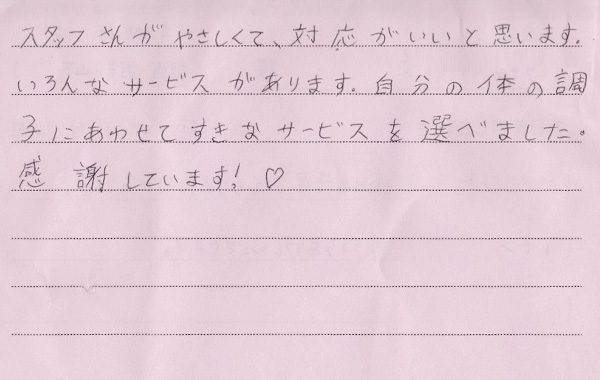 スタッフさんがやさしくて、対応がいいと思います。
いろんなサービスがあります。自分の体の調
子にあわせてすきなサービスを選べました。
感謝しています!♡